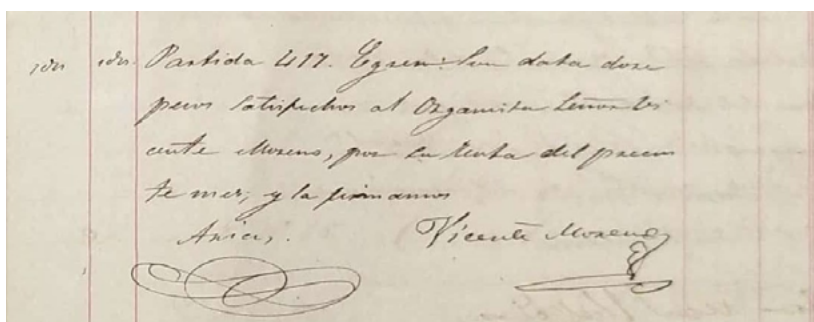 idn idn. Partida 417. Egreso: Son data doze
pesos satisfechos al Organista Señor Vi
cente Moreno, por su renta del presen
te mes; y la firmamos
Arias. Vicente Moreno